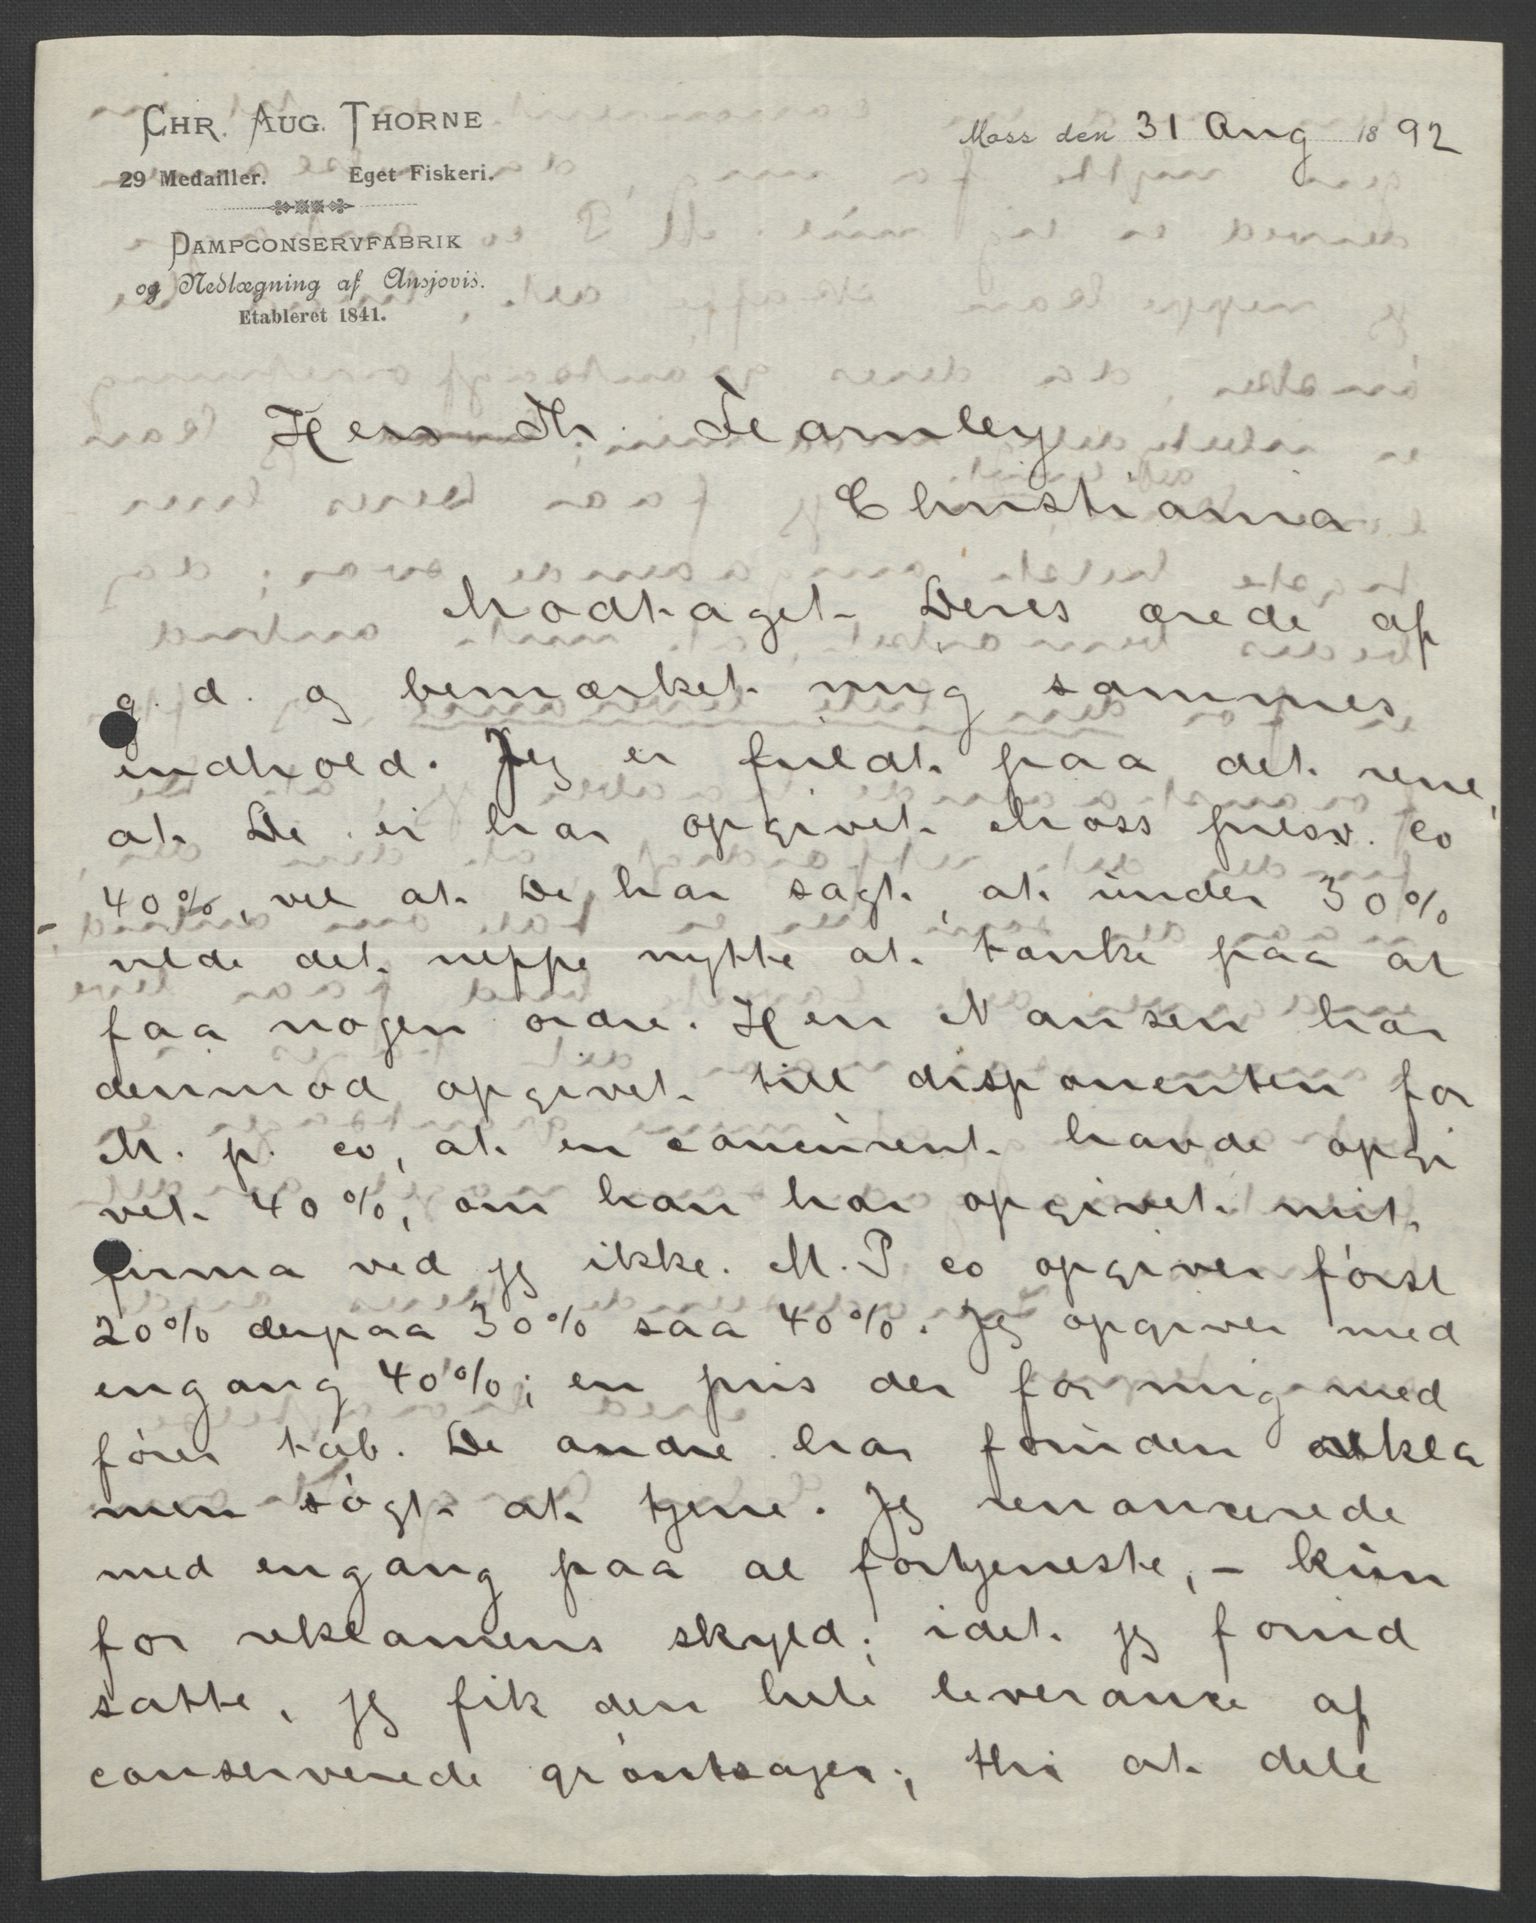 CHR. AUG. THORNE
29 Medailler. Eget Fiskeri.
DAMPCONSERVFABRIK
og Nedlægning af Ansjovis.
Etableret 1841.
Moss den 31 Aug 1892
Herr Th. Fearnley
Christiania
Modtaget Deres ærede af
g. d. og bemærket mig sammes
indhold. Jeg er fuldt paa det rene,
at De ei har opgivet Moss presv. co
40%, vel at De har sagt, at under 30%
vilde det neppe nytte at tænke paa at
faa nogen ordre. Herr Nansen har
derimod opgivet till disponenten for
M. p. co, at en concurent havde opgi
vet 40%, om han har opgivet mit
firma ved jeg ikke. M. P co opgiver först
20% derpaa 30% saa 40%. Jeg opgiver med
engang 40%; en pris der for mig med
förer tab. De andre har foruden rekla
men sögt at tjene. Jeg renoncerede
med engang paa al fortjeneste, - kun
for reklamens skyld; idet jeg forud
satte, jeg fik den hele leverance af
conserverede gröntsager; thi at dele